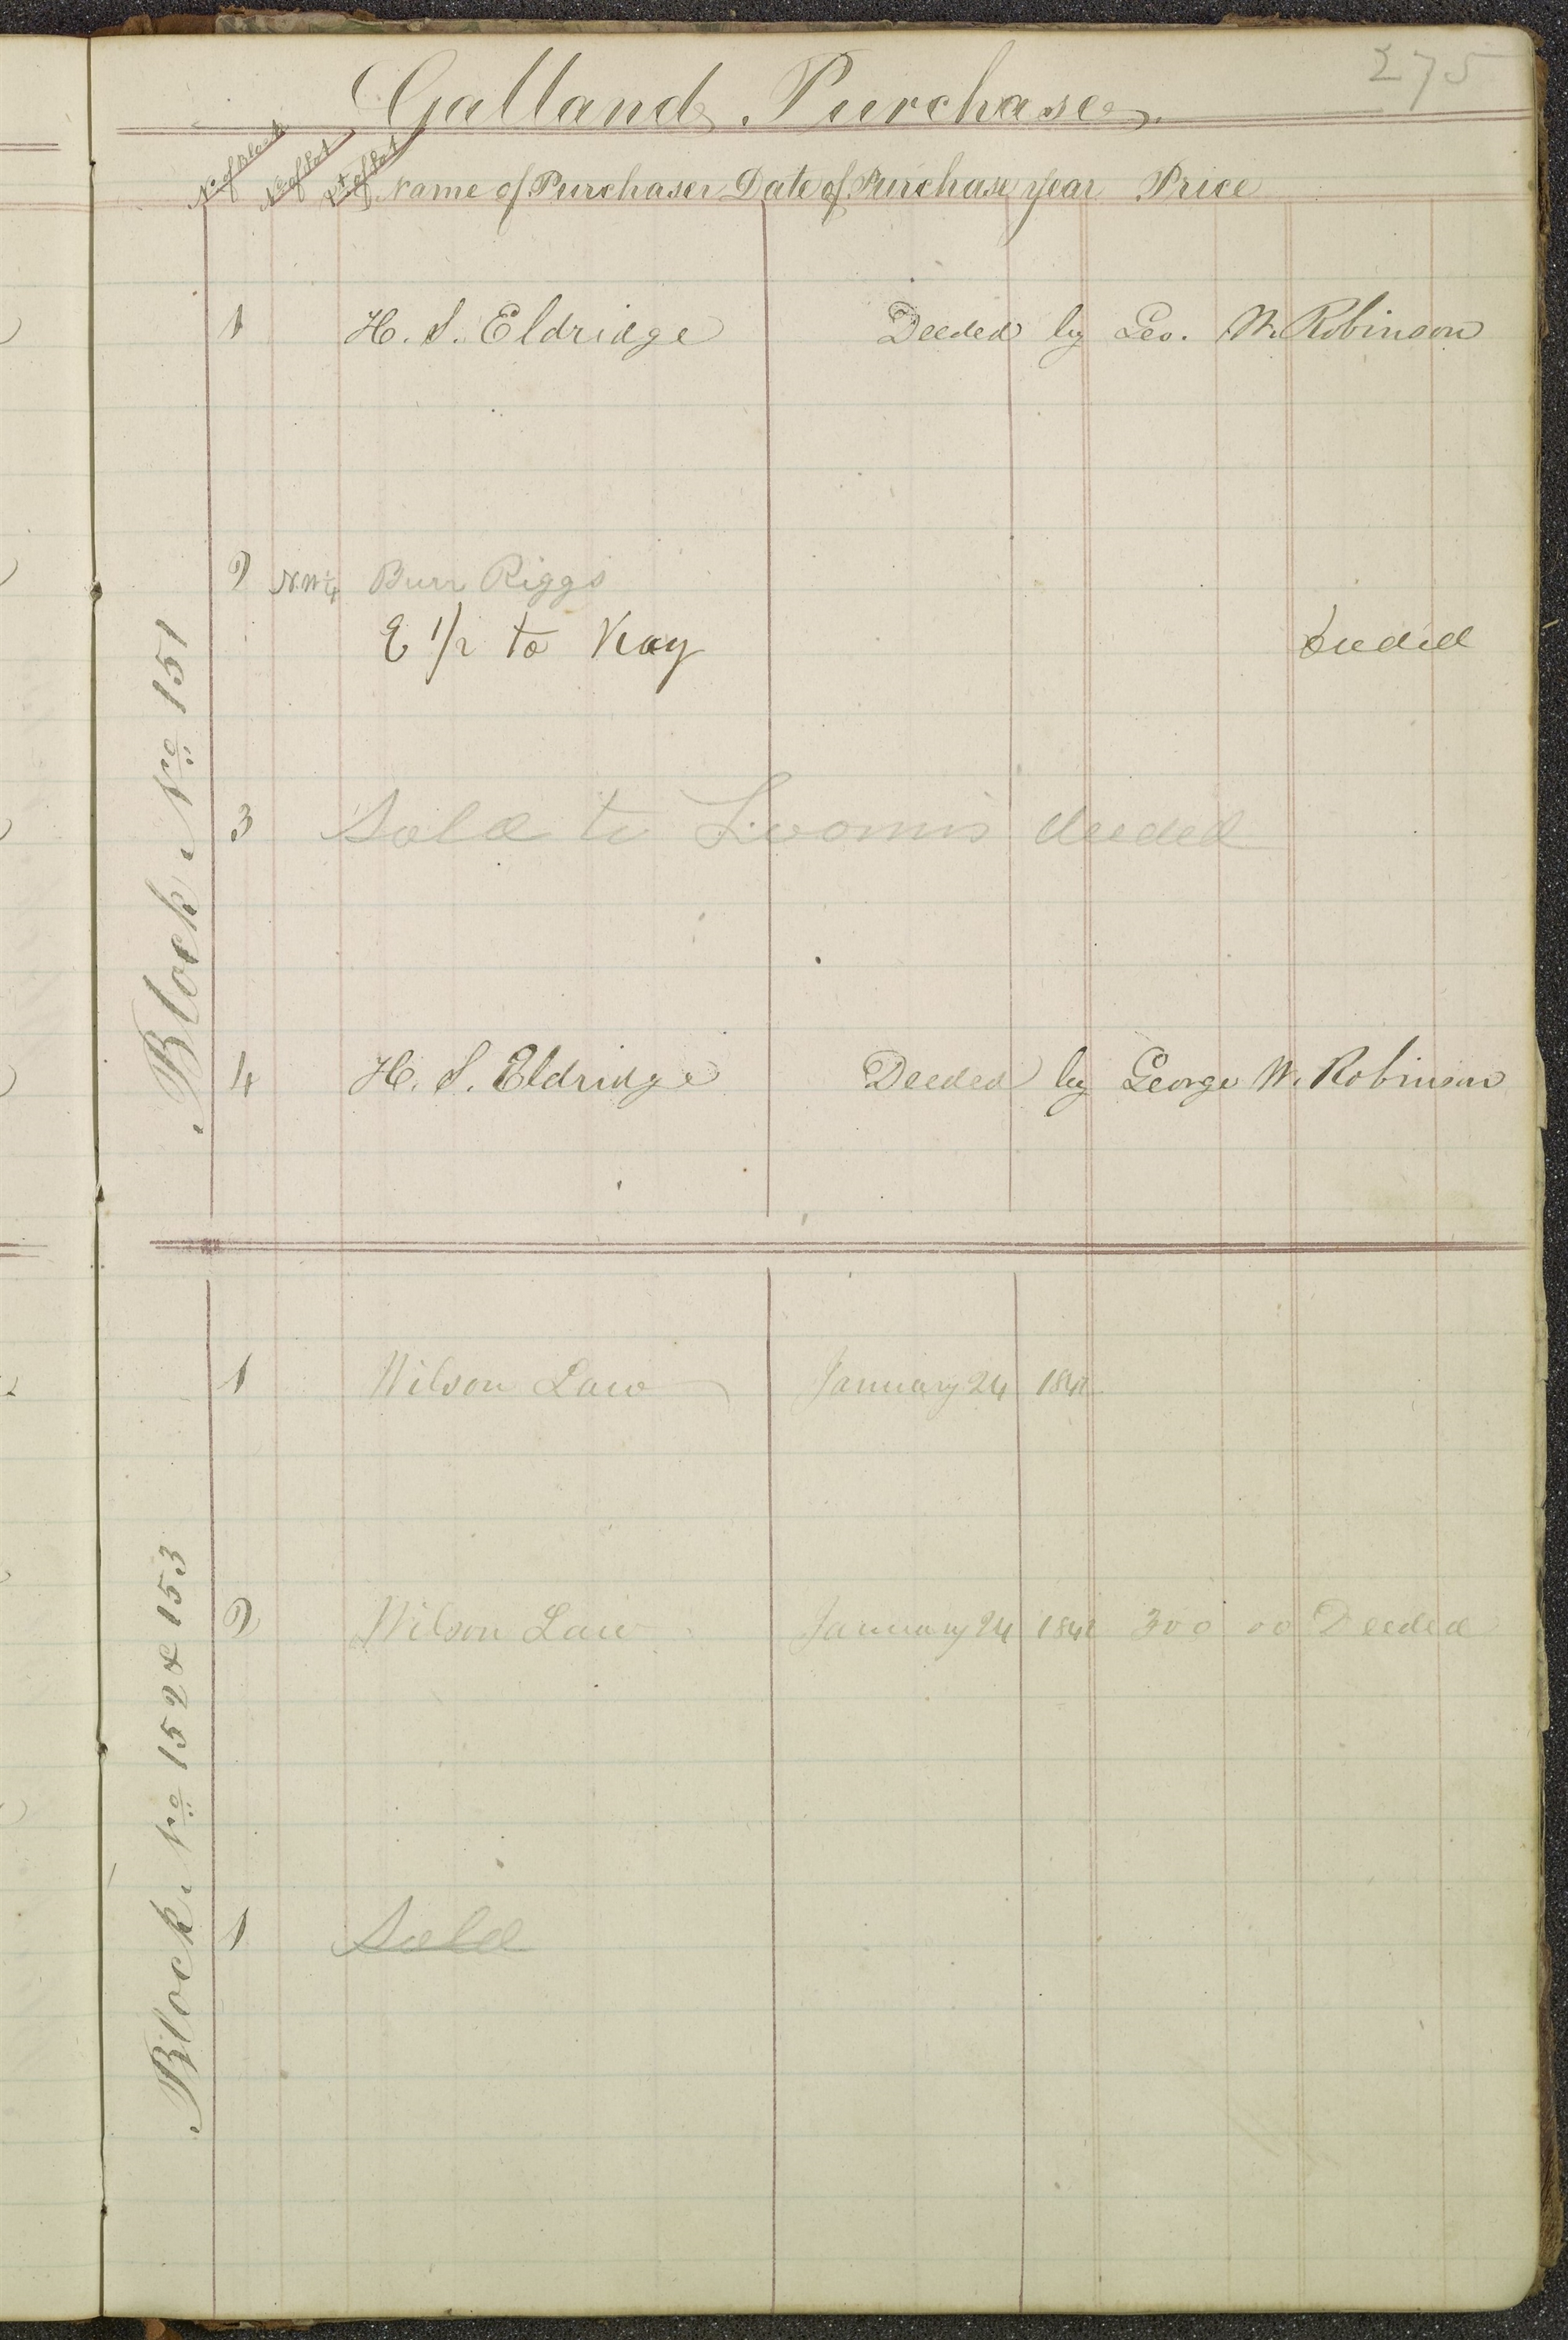 275
Galland Purchase
No of Block No of Lot Pt of Lot Name of Purchaser Date of Purchase year Price
Block No 151
1 H. S. Eldridge Deeded by Geo. W. Robinson
2 N.W 1/4 Burr Riggs
E 1/2 to Kay Deeded
3 Sold to Loomis deeded
4 H. S. Eldridge Deeded by George W. Robinson
Block No 152 & 153
1 Wilson Law January 24
2 Wilson Law January 24 1842 300 00 Deeded
1 Sold